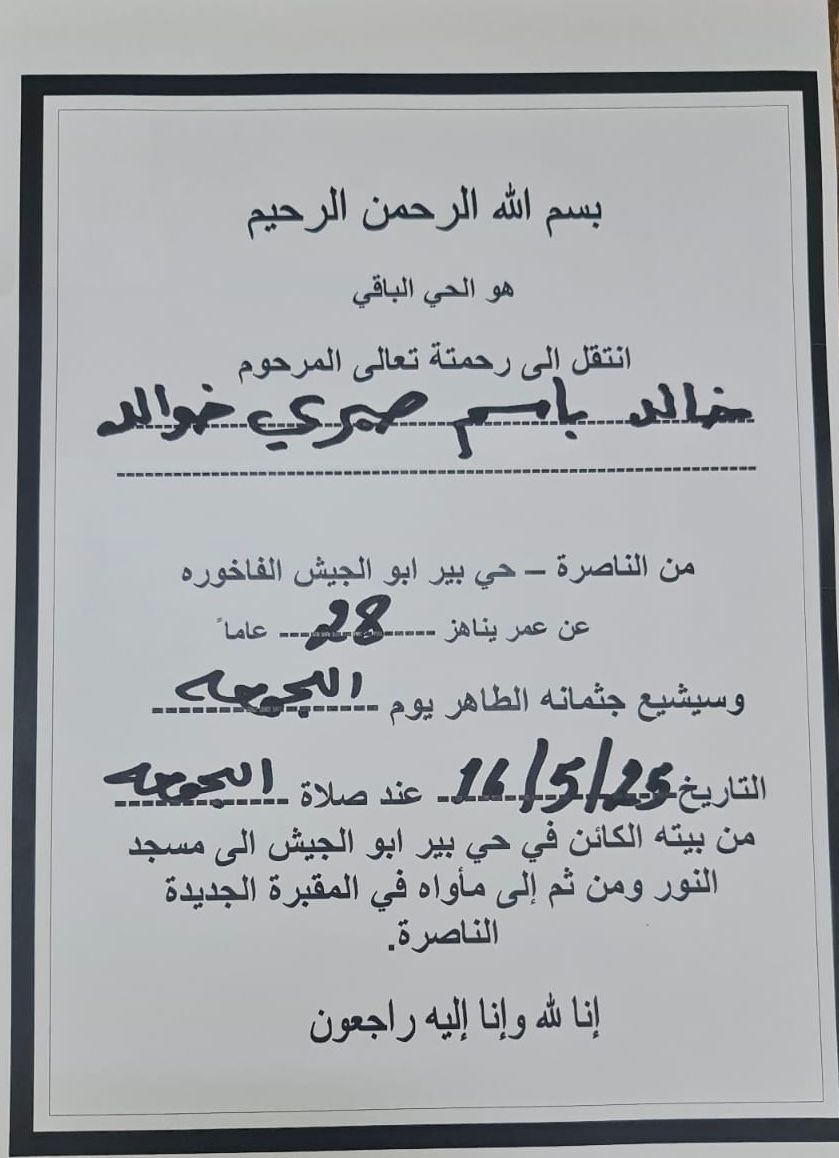 بسم الله الرحمن الرحيم
هو الحي الباقي
انتقل الى رحمتة تعالى المرحوم
خالد باسم صبري خوالد
من الناصرة – حي بير ابو الجيش الفاخوره
عن عمر يناهز 28 عاماً
وسيشيع جثمانه الطاهر يوم الجمعه
التاريخ 16/5/25 عند صلاة الجمعه
من بيته الكائن في حي بير ابو الجيش الى مسجد
النور ومن ثم إلى مأواه في المقبرة الجديدة
الناصرة.
إنا لله وإنا إليه راجعون